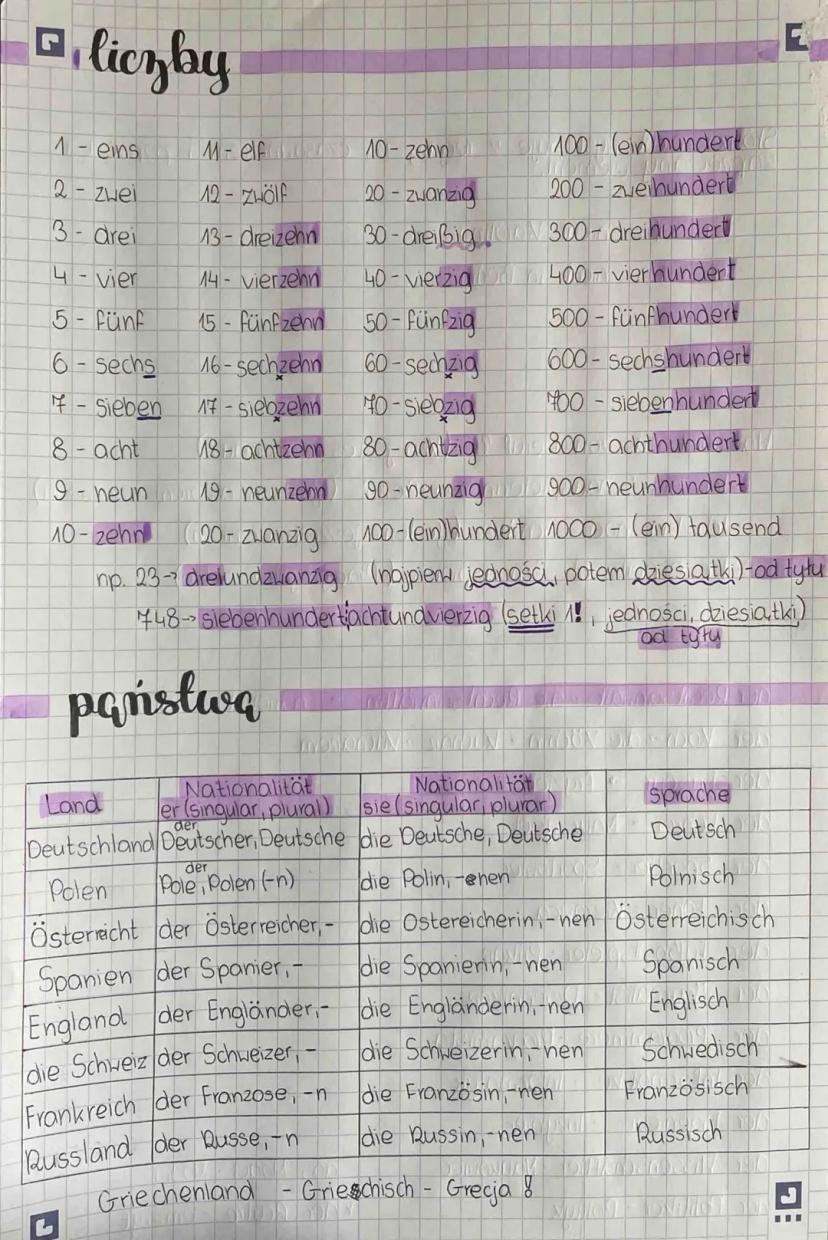 liczby
1 - eins 11 - elf 10 - zehn 100 - (ein)hundert
2 - zwei 12 - zwölf 20 - zwanzig 200 - zweihundert
3 - drei 13 - dreizehn 30 - dreißig. 300 - dreihundert
4 - vier 14 - vierzehn 40 - vierzig 400 - vierhundert
5 - fünf 15 - fünfzehn 50 - fünfzig 500 - fünfhundert
6 - sechs 16 - sechzehn 60 - sechzig 600 - sechshundert
7 - sieben 17 - siebzehn 70 - siebzig 700 - siebenhundert
8 - acht 18 - achtzehn 80 - achtzig 800 - achthundert
9 - neun 19 - neunzehn 90 - neunzig 900 - neunhundert
10 - zehn 20 - zwanzig 100 - (ein)hundert 1000 - (ein) tausend
np. 23 → dreiundzwanzig (najpierw jedności, potem dziesiątki) - od tyłu
748 → siebenhundert|achtundvierzig (setki 1!, jedności, dziesiątki)
od tyłu
państwa
Land Nationalität er (singular, plural) Nationalität sie (singular, plurar) Sprache
Deutschland der Deutscher, Deutsche die Deutsche, Deutsche Deutsch
Polen der Pole, Polen (-n) die Polin, -enen Polnisch
Österreicht der Österreicher, - die Ostereicherin, -nen Österreichisch
Spanien der Spanier, - die Spanierin, -nen Spanisch
England der Engländer, - die Engländerin, -nen Englisch
die Schweiz der Schweizer, - die Schweizerin, -nen Schwedisch
Frankreich der Franzose, -n die Französin, -nen Französisch
Russland der Russe, -n die Russin, -nen Russisch
Griechenland - Grieschisch - Grecja !